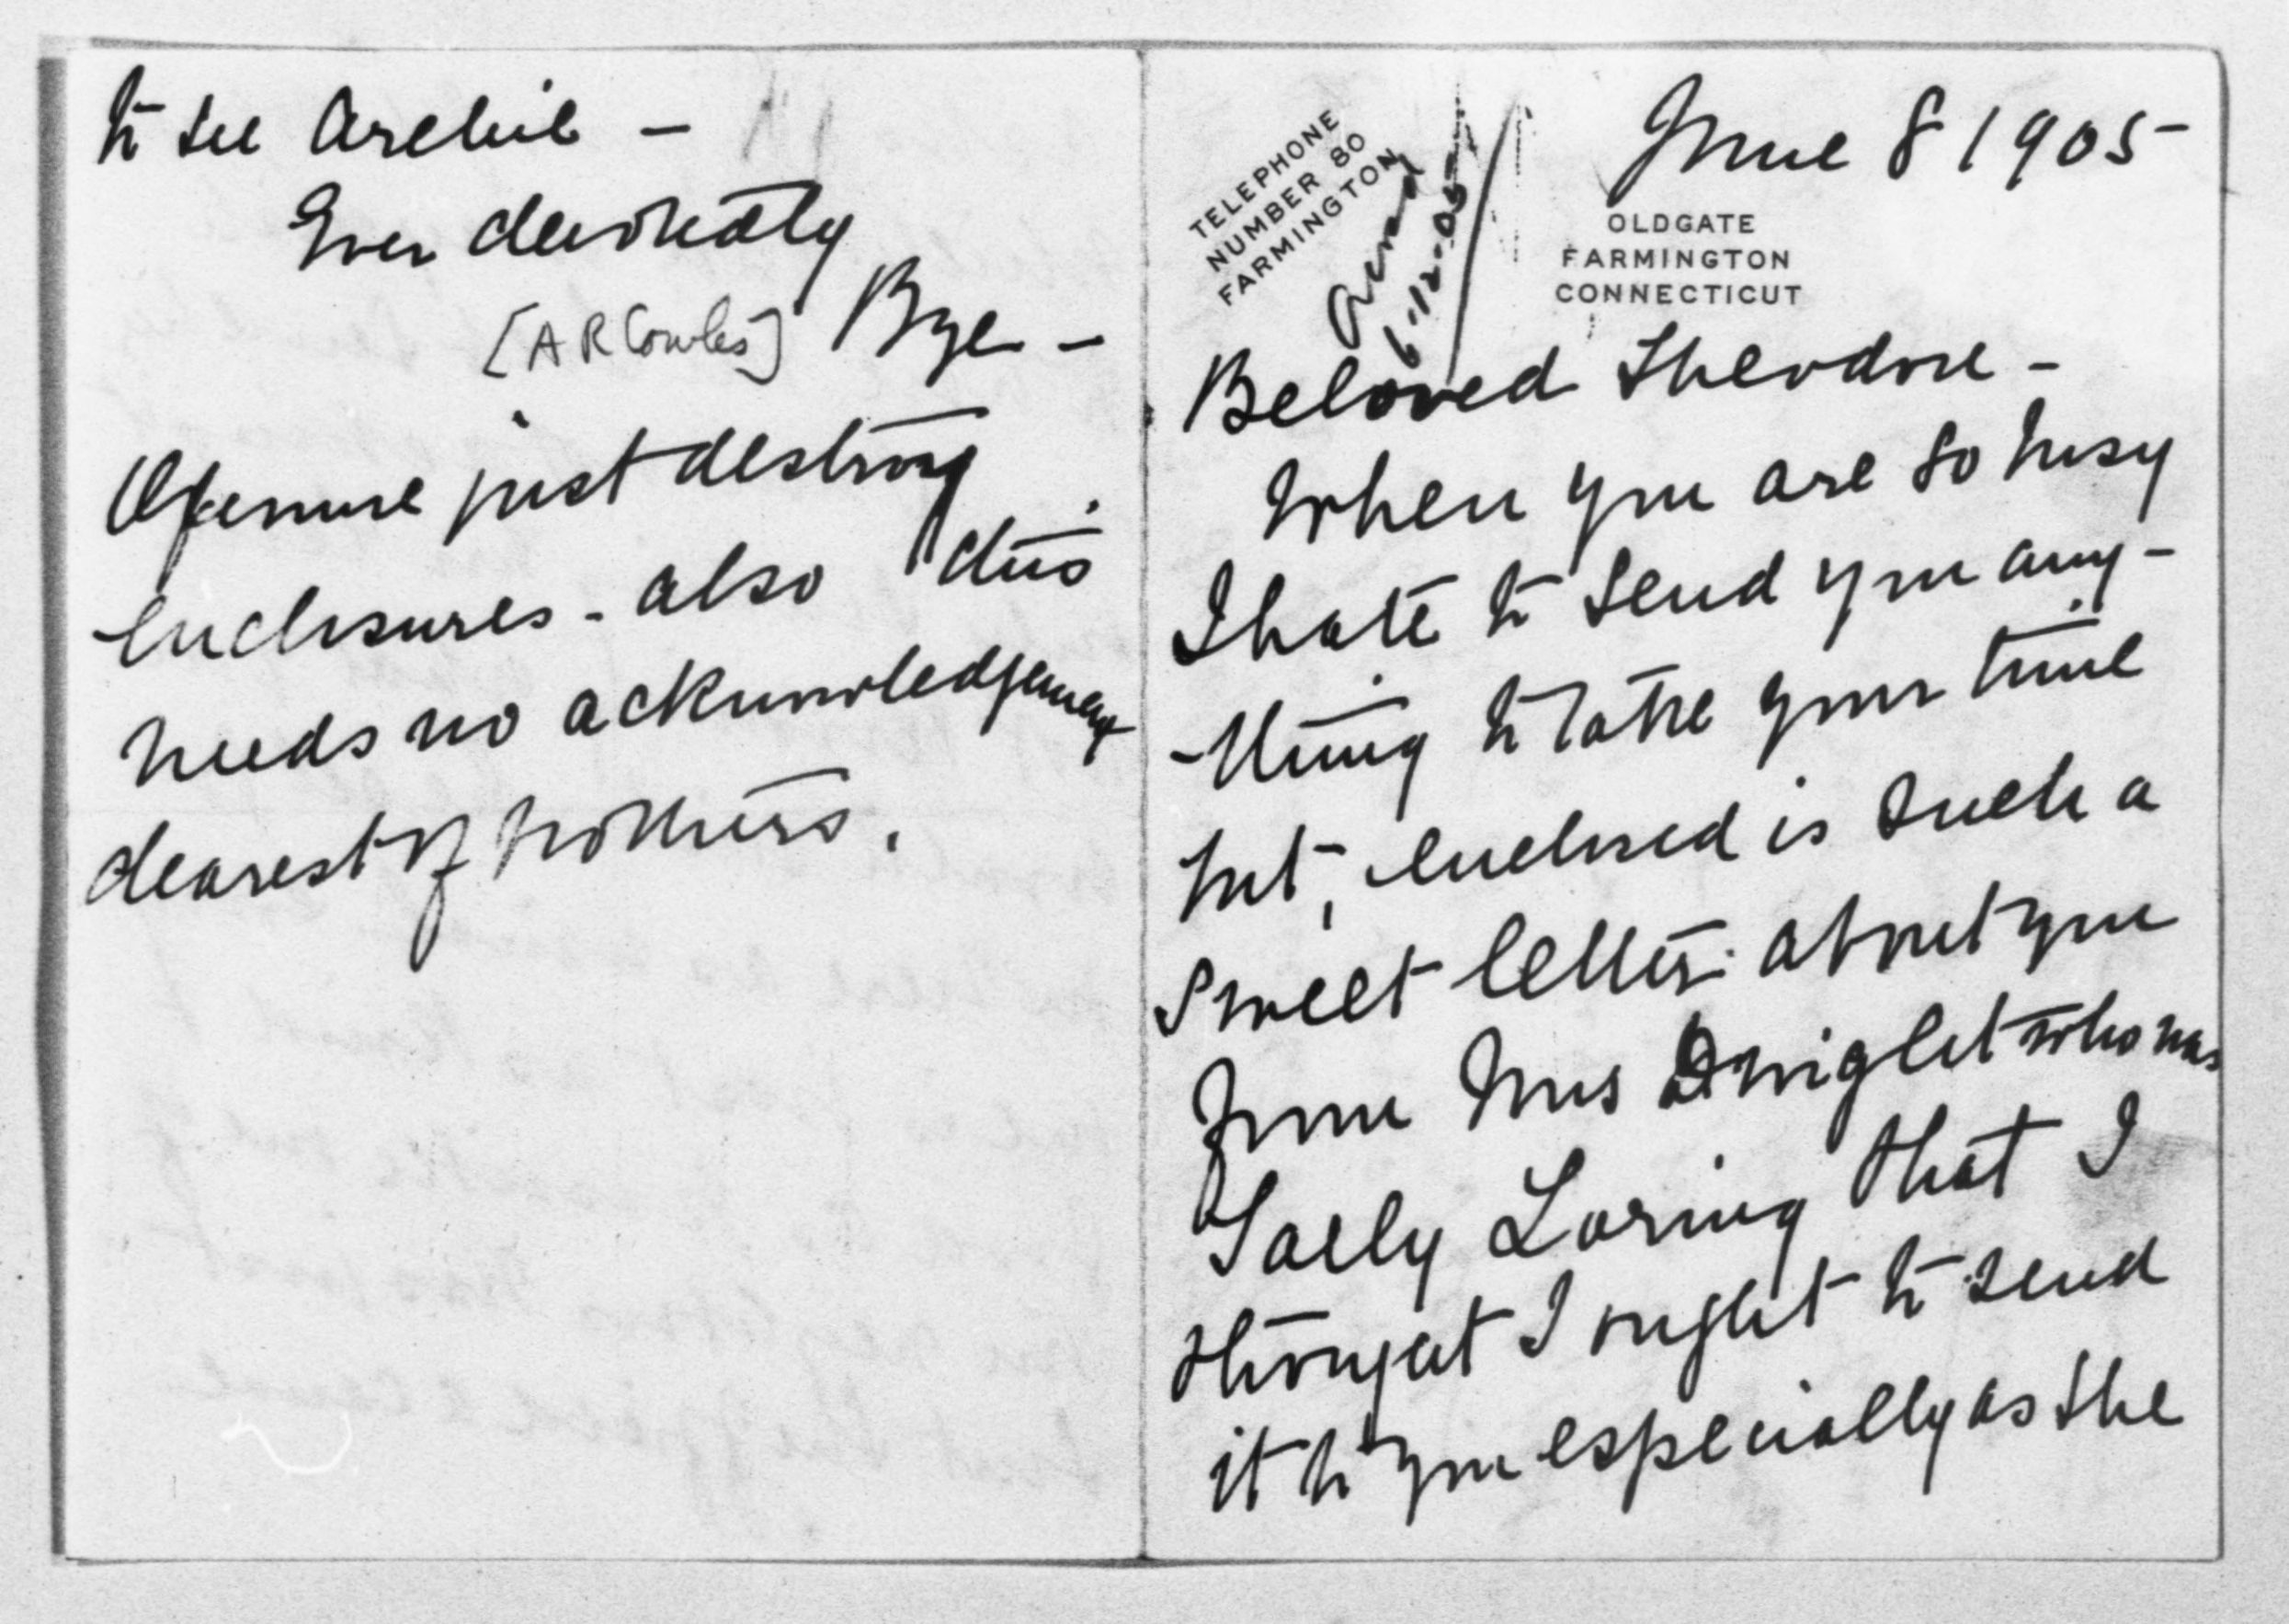 to see Archie —
Ever devotedly
[A R Cowles] Bye —
Of course just destroy
enclosures - also this
needs no acknowledgement
dearest of brothers.
TELEPHONE
NUMBER 80
FARMINGTON
Ackd
6-12-05
June 8 1905 -
OLDGATE
FARMINGTON
CONNECTICUT
Beloved Theodore -
When you are so busy
I hate to send you any-
-thing to take your time
but, enclosed is such a
sweet letter about you
from Mrs Dwight who was
Sally Loring that I
thought I ought to send
it to you especially as the